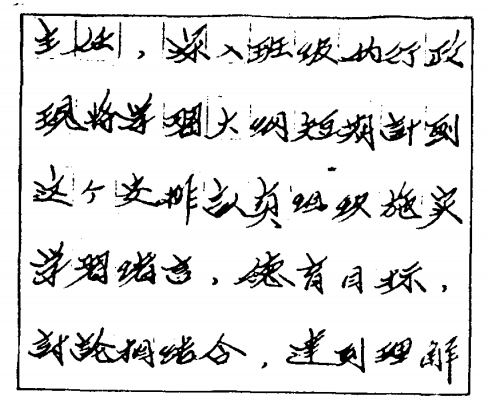 主任，深入班级的行政
现将学习大纲短期計划
这个安排認真组织施实
学習绪言，德育目标，
討論相结合，達到理解